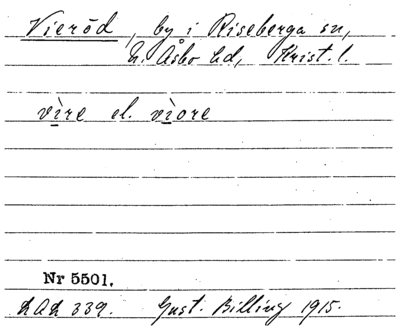 Vieröd, by i Riseberga sn,
N. Åsbo hd, Krist. l.
vìre el. vìore
Nr 5501.
LAL 339. Gust. Billing 1915.